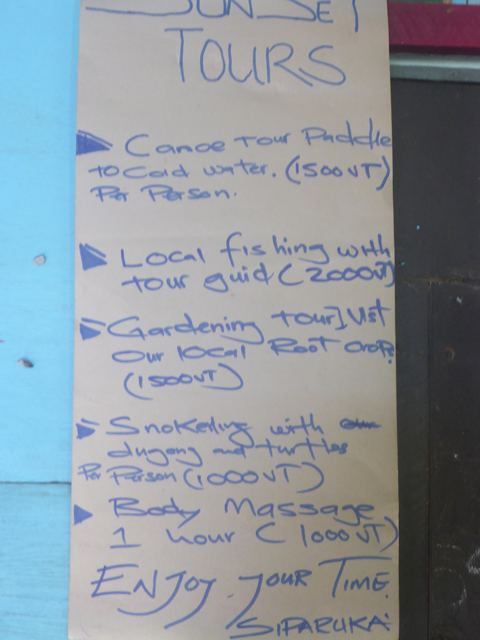 SUNSET
TOURS
Canoe tour Paddle
to Cold water. (1500VT)
Per Person.
Local fishing with
tour guid (2000VT)
Gardening tour] Vist
our local Root crops
(1500VT)
Snokeling with
dugong and turtles
Per Person (1000VT)
Body Massage
1 hour (1000VT)
ENJOY YOUR TIME
SIPARUKA